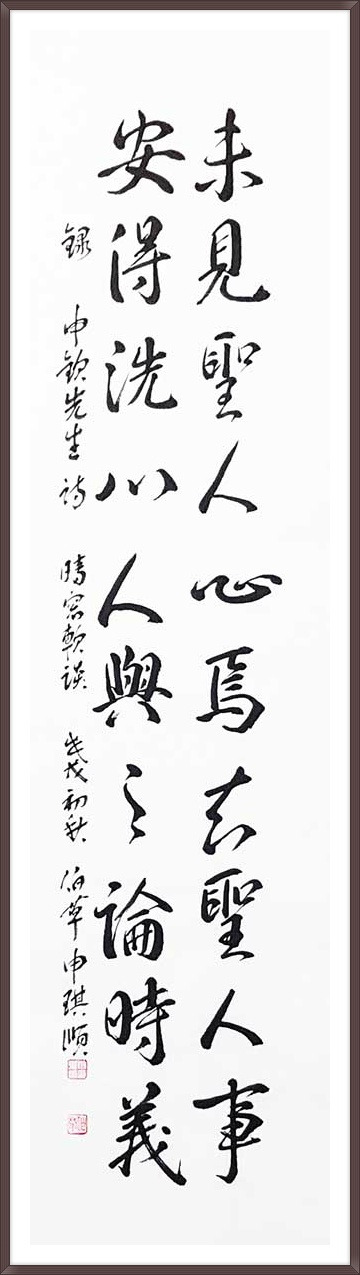 未見聖人心焉知聖人事
安得洗心人與之論時義
錄 申欽先生 詩 晴窓軟談 戊戌初秋 伯草 申琪順